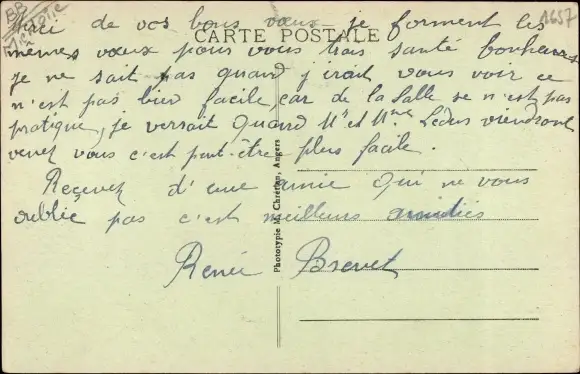 Merci de vos bons vœux je forment les
CARTE POSTALE
mêmes vœux pour vous trais santé bonheurs
je ne sait pas quand j'irait vous voir ce
n'est pas bien facile, car de la Salle se n'est pas
pratique, je verrait quand Mr et Mme Ledus viendront
venez vous c'est peut-être plus facile.
Recevez d'une amie qui ne vous
oublie pas c'est meilleurs amitiés
Renée Brevet
Phototypie M. Chrétien, Angers
1657